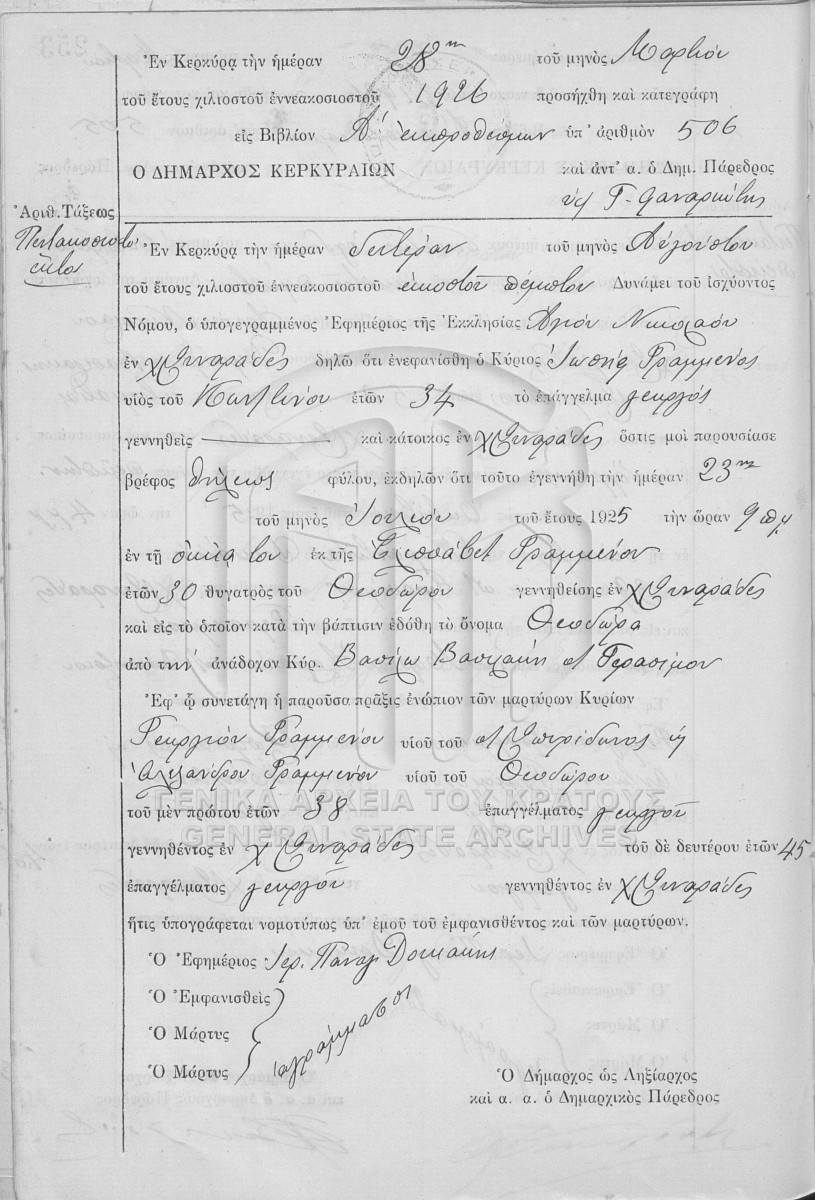 Ἐν Κερκύρᾳ τὴν ἡμέραν 28ην τοῦ μηνὸς Μαρτίου
τοῦ ἔτους χιλιοστοῦ ἐννεακοσιοστοῦ 1926 προσήχθη καὶ κατεγράφη
εἰς Βιβλίον Α' ἐκπροθέσμων ὑπ' ἀριθμὸν 506
Ο ΔΗΜΑΡΧΟΣ ΚΕΡΚΥΡΑΙΩΝ καὶ ἀντ' α. ὁ Δημ. Πάρεδρος
Γ.
Ἀριθ. Τάξεως
Πεντακοσιοστὸν
ἕκτον
Ἐν Κερκύρᾳ τὴν ἡμέραν Δευτέραν τοῦ μηνὸς Αὐγούστου
τοῦ ἔτους χιλιοστοῦ ἐννεακοσιοστοῦ εἰκοστοῦ πέμπτου Δυνάμει τοῦ ἰσχύοντος
Νόμου, ὁ ὑπογεγραμμένος Ἐφημέριος τῆς Ἐκκλησίας Ἁγίου Νικολάου
ἐν χ Συναράδες δηλῶ ὅτι ἐνεφανίσθη ὁ Κύριος Ἰωσὴφ Γραμμένος
υἱὸς τοῦ Κωνστ/νου ἐτῶν 34 τὸ ἐπάγγελμα γεωργός
γεννηθεὶς — καὶ κάτοικος ἐν χ Συναράδες ὅστις μοὶ παρουσίασε
βρέφος θήλεως φύλου, ἐκδηλῶν ὅτι τοῦτο ἐγεννήθη τὴν ἡμέραν 23ην
τοῦ μηνὸς Ἰουλίου τοῦ ἔτους 1925 τὴν ὥραν 9 πμ
ἐν τῇ οἰκίᾳ του ἐκ τῆς Ἐλισσάβετ Γραμμένου
ἐτῶν 30 θυγατρὸς τοῦ Θεοδώρου γεννηθείσης ἐν χ Συναράδες
καὶ εἰς τὸ ὁποῖον κατὰ τὴν βάπτισιν ἐδόθη τὸ ὄνομα Θεοδώρα
ἀπὸ τὴν ἀνάδοχον Κύρ. Βασίλω Βασιλάκη Γερασίμου
Ἐφ' ᾧ συνετάγη ἡ παροῦσα πρᾶξις ἐνώπιον τῶν μαρτύρων Κυρίων
Γεωργίου Γραμμένου υἱοῦ τοῦ Σπυρίδωνος
Ἀλεξάνδρου Γραμμένου υἱοῦ τοῦ Θεοδώρου
ΓΕΝΙΚΑ ΑΡΧΕΙΑ ΤΟΥ ΚΡΑΤΟΥΣ
τοῦ μὲν πρώτου ἐτῶν 38 ἐπαγγέλματος γεωργοῦ
GENERAL STATE ARCHIVES
γεννηθέντος ἐν χ Συναράδες τοῦ δὲ δευτέρου ἐτῶν 45
ἐπαγγέλματος γεωργοῦ γεννηθέντος ἐν χ Συναράδες
ἥτις ὑπογράφεται νομοτύπως ὑπ' ἐμοῦ τοῦ ἐμφανισθέντος καὶ τῶν μαρτύρων.
Ὁ Ἐφημέριος Ἱερ. Παναγ.
Ὁ Ἐμφανισθεὶς
Ὁ Μάρτυς
Ὁ Μάρτυς
ἀγράμματοι
Ὁ Δήμαρχος ὡς Ληξίαρχος
καὶ α. α. ὁ Δημαρχικὸς Πάρεδρος